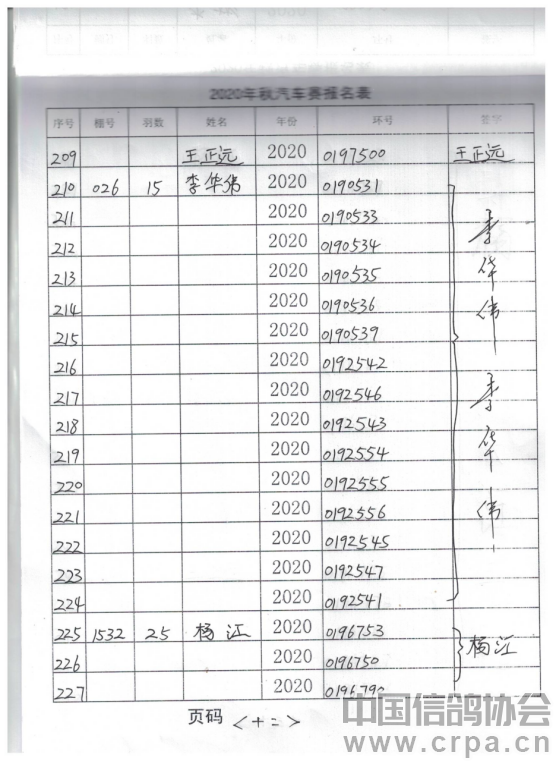 2020年秋汽车赛报名表
序号 棚号 羽数 姓名 年份 环号 签字
209 王正远 2020 0197500 王正远
210 026 15 李华伟 2020 0190531
211 2020 0190533
212 2020 0190534
213 2020 0190535
214 2020 0190536
215 2020 0190539
216 2020 0192542
217 2020 0192546
218 2020 0192543
219 2020 0192554
220 2020 0192555
221 2020 0192556
222 2020 0192545
223 2020 0192547
224 2020 0192541
李华伟
李华伟
225 1532 25 杨江 2020 0196753
226 2020 0196750
227 2020 0196790
杨江
页码 <十二>
中国信鸽协会
www.crpa.cn